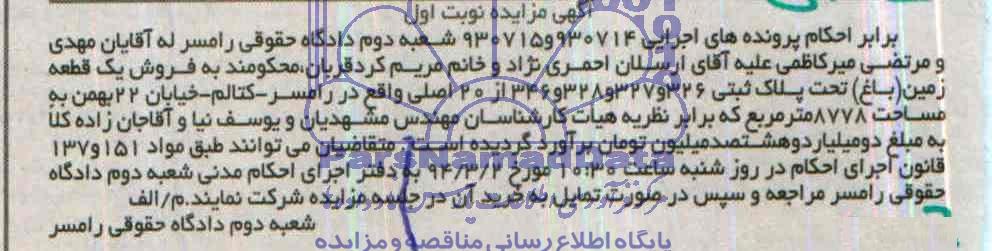 آگهی مزایده نوبت اول
برابر احکام پرونده های اجرایی ۹۳۰۷۱۴و۹۳۰۷۱۵ شعبه دوم دادگاه حقوقی رامسر له آقایان مهدی
و مرتضی میرکاظمی علیه آقای ارسلان احمری نژاد و خانم مریم کردقربان،محکومند به فروش یک قطعه
زمین(باغ) تحت پلاک ثبتی ۳۲۶و۳۲۷و۳۲۸و۳۴۶ از ۲۰ اصلی واقع در رامسر-کتالم-خیابان ۲۲بهمن به
مساحت ۸۷۷۸مترمربع که برابر نظریه هیات کارشناسان مهندس مشهدیان و یوسف نیا و آقاجان زاده کلا
به مبلغ دومیلیاردوهشتصدمیلیون تومان برآورد گردیده است. متقاضیان می توانند طبق مواد ۱۵۱و۱۳۷
قانون اجرای احکام در روز شنبه ساعت ۱۰:۳۰ مورخ ۹۴/۳/۲ به دفتر اجرای احکام مدنی شعبه دوم دادگاه
حقوقی رامسر مراجعه و سپس در صورت تمایل به خرید آن در جلسه مزایده شرکت نمایند.م/الف
شعبه دوم دادگاه حقوقی رامسر
ParsNamadData
پایگاه اطلاع رسانی مناقصه و مزایده